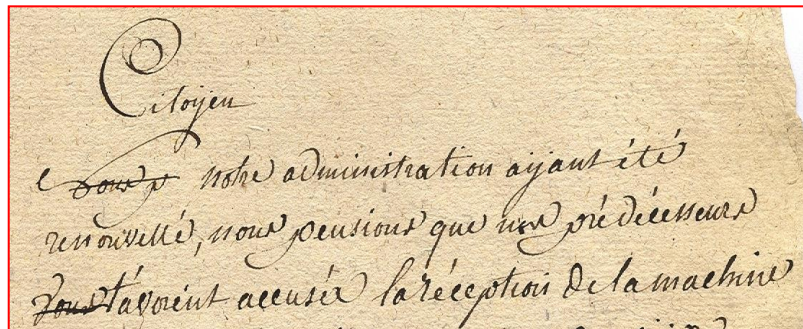 Citoyen
notre administration ayant été
renouvellé, nous pensions que nos prédécesseurs
t'avoient accusér la réception de la machine